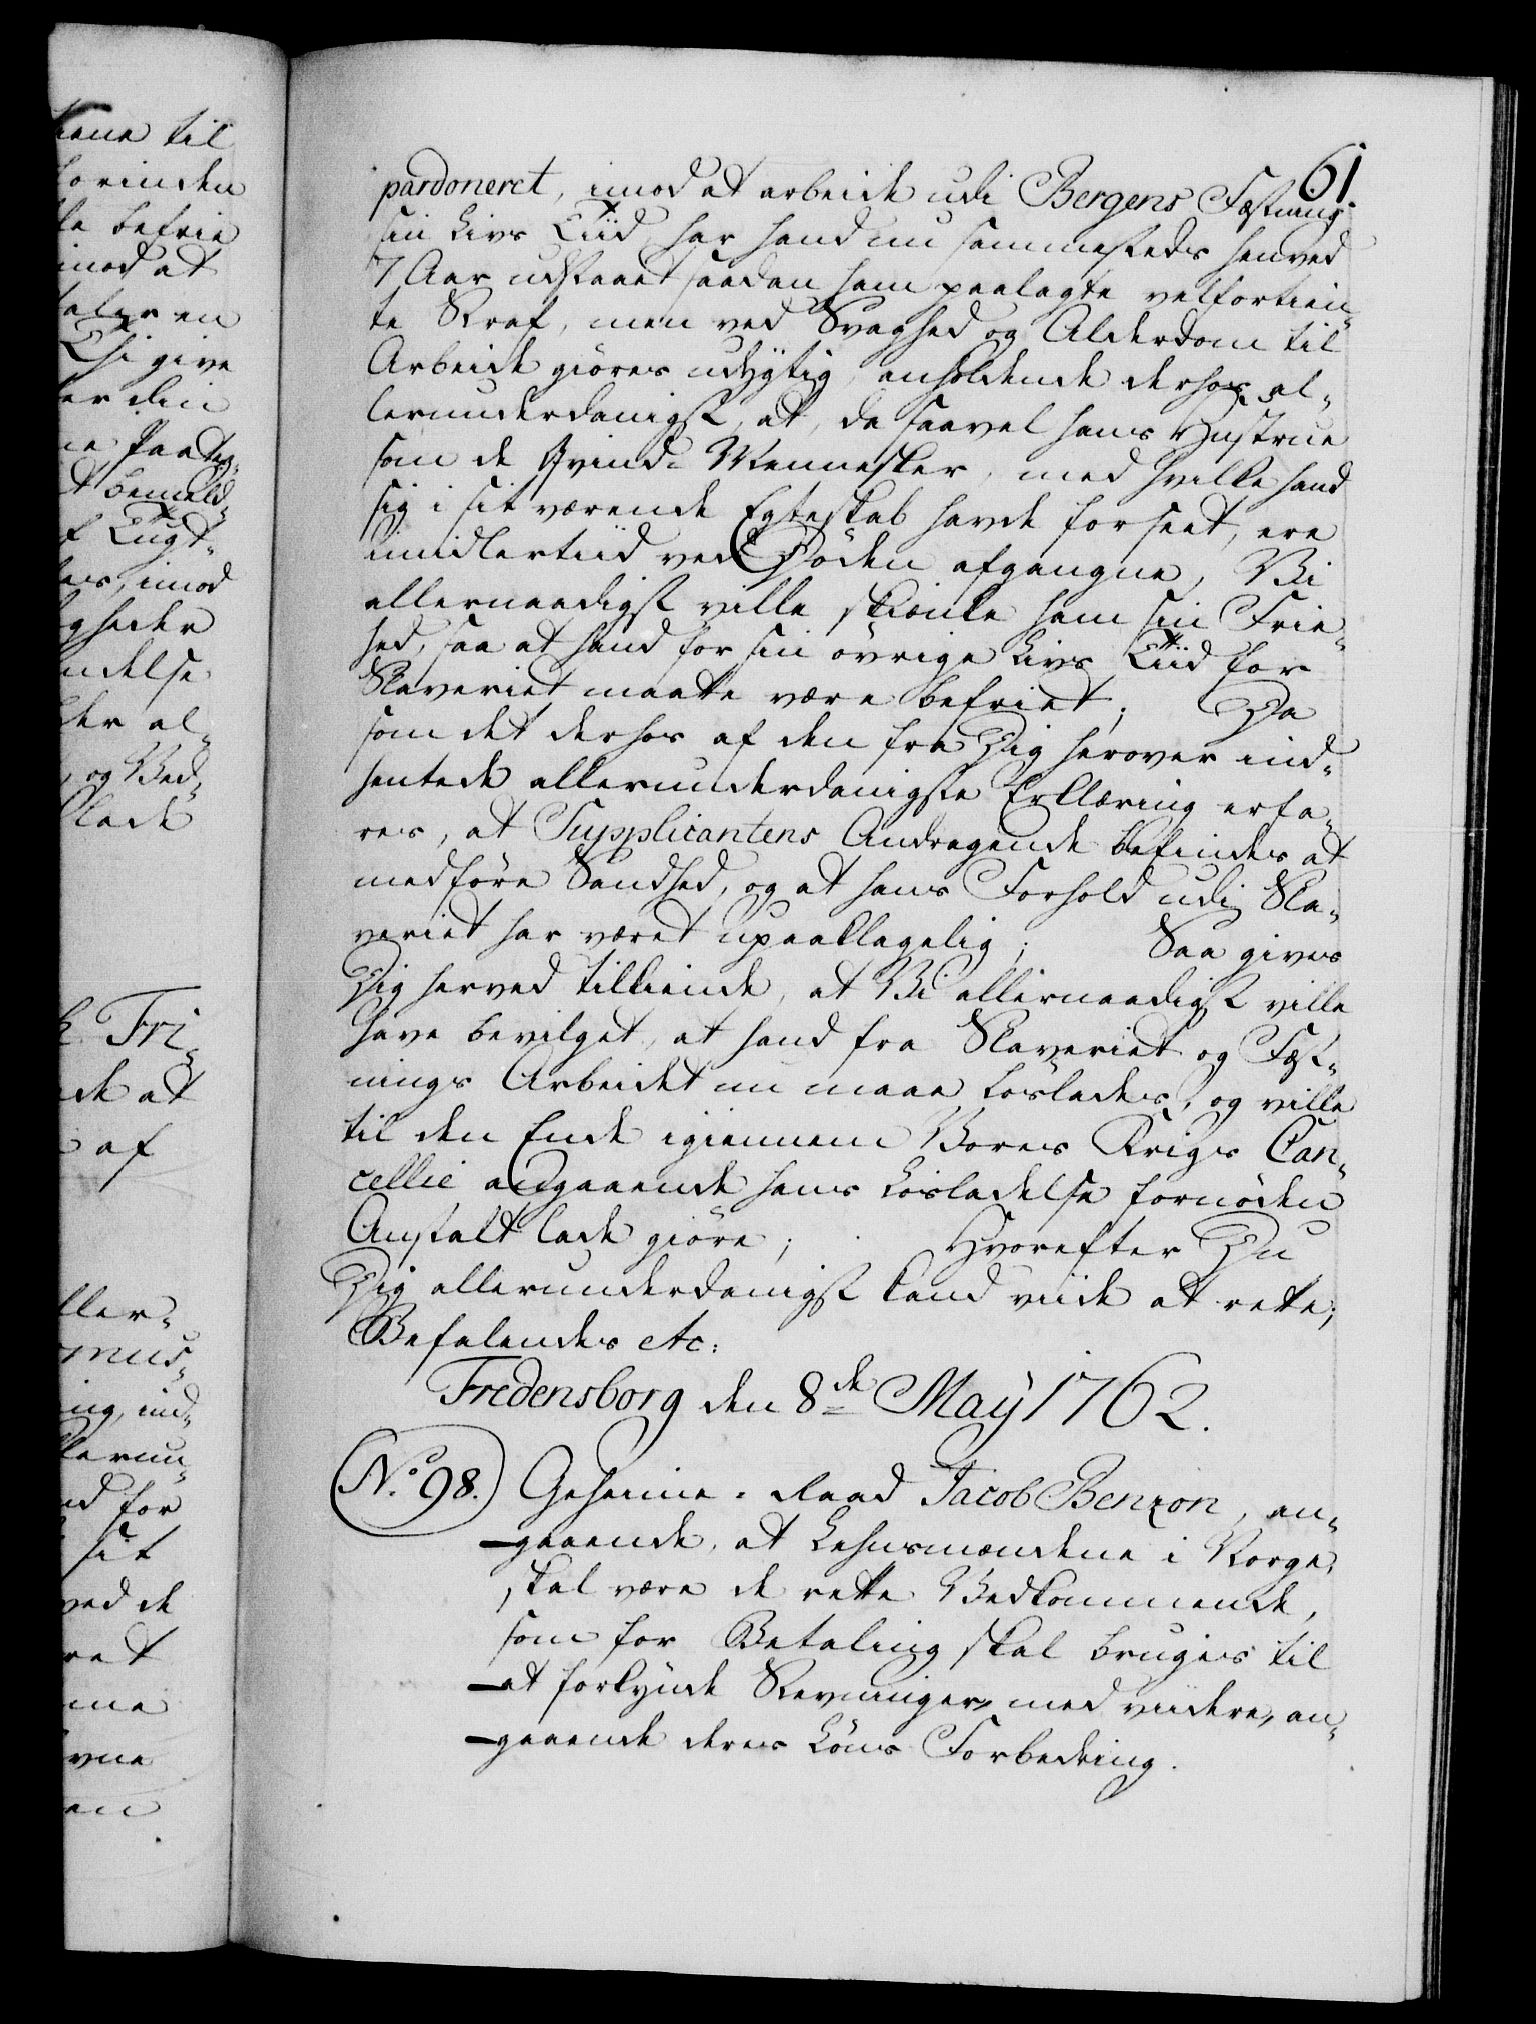 61.
pardoneret, imod at arbeide udi Bergens Fæstning
sin Livs Tiid har hand nu sammesteds henved
7 Aar udstaaet saadan ham paalagte velfortien¬
te Straf, men ved Svaghed og Alderdom til
Arbeide giöres udygtig, anholdende derhos al¬
lerunderdanigst, at, da saavel hans Hustrue
som de Qvind-Mennesker, med hvilke hand
sig i sit værende Egteskab havde forseet, ere
imidlertiid ved Döden afgangne, Vi
allernaadigst ville skienke ham sin Frie¬
hed, saa at hand for sin övrige Livs Tiid for
Slaveriet maatte være befriet; Da
som det derhos af den fra Dig herover ind¬
hentede allerunderdanigste Erklæring erfa¬
res, at Supplicantens Andragende befindes at
medföre Sandhed, og at hans Forhold udi Sla¬
veriet har været upaaklagelig; Saa gives
Dig herved tilkiende, at Vi allernaadigst ville
have bevilget, at hand fra Slaveriet og Fæst¬
nings Arbeidet nu maae löslades, og ville
til den Ende igiennem Vores Krigs Can¬
cellie angaaende hans Lösladelse fornöden
Anstalt lade giöre; Hvorefter Du
Dig allerunderdanigst kand viide at rette;
Befalendes etc:
Fredensborg den 8de May 1762.
No. 98. Geheime-Raad Jacob Benzon, an¬
gaaende, at Lehnsmændene i Norge,
skal være de rette Vedkommende,
som for Betaling skal bruges til
at forkynde Stevninger, med viidere, an¬
gaaende deres Löns Forbedring.